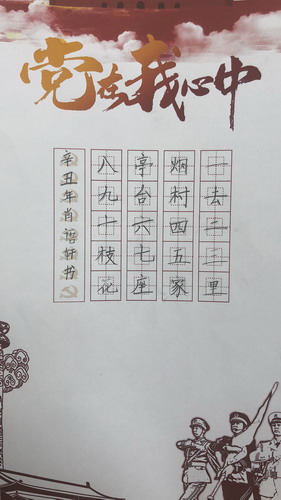 党在我心中
一去二三里
烟村四五家
亭台六七座
八九十枝花
辛丑年肖语轩书